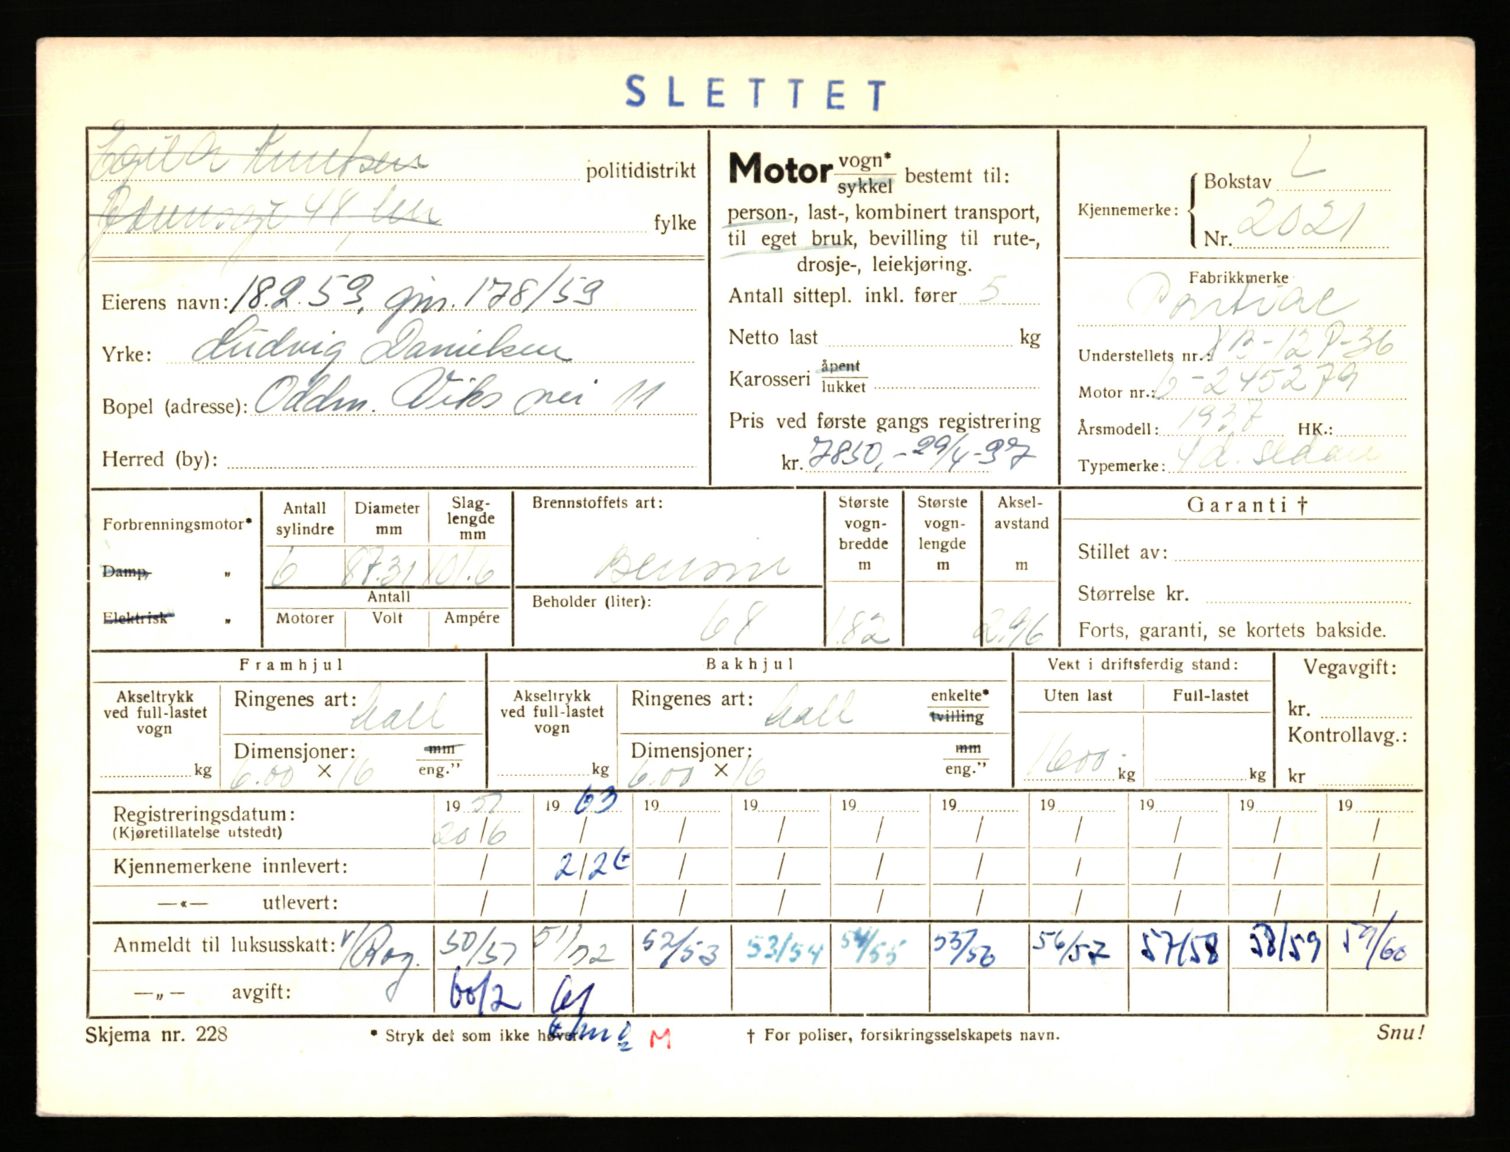 SLETTET
Knutsen politidistrikt
48, fylke
Eierens navn: 18.2.59, gjn. 178/59
Yrke: Ludvig Danielsen
Bopel (adresse): Oddm. Viks vei 11
Herred (by):
Motor vogn* bestemt til:
sykkel
person-, last-, kombinert transport,
til eget bruk, bevilling til rute-,
drosje-, leiekjøring.
Antall sittepl. inkl. fører 5
Netto last kg
Karosseri åpent
lukket
Pris ved første gangs registrering
kr. 7850,- 29/4-37
Kjennemerke: Bokstav L
Nr. 2021
Fabrikkmerke
Pontiac
Understellets nr.: -12P-36
Motor nr.: 6-245279
Årsmodell: 1937 HK.:
Typemerke: 4 d. sedan
Forbrenningsmotor*
Damp, "
Elektrisk "
Antall sylindre Diameter mm Slaglengde mm
6 87.31 101.6
Antall
Motorer Volt Ampére
Brennstoffets art:
Bensin
Beholder (liter):
68
Største vognbredde m Største vognlengde m Akselavstand m
1.82 2.96
Garanti †
Stillet av:
Størrelse kr.
Forts, garanti, se kortets bakside.
Framhjul
Akseltrykk
ved full-lastet
vogn
kg
Ringenes art:
Dimensjoner: mm
6.00 × 16 eng."
Bakhjul
Akseltrykk
ved full-lastet
vogn
kg
Ringenes art: enkelte*
tvilling
Dimensjoner: mm
6.00 × 16 eng."
Vekt i driftsferdig stand:
Uten last Full-lastet
1600.- kg kg
Vegavgift:
kr.
Kontrollavg.:
kr
Registreringsdatum: 19 51 19 63 19 19 19 19 19 19 19 19
(Kjøretillatelse utstedt) 20/6 / / / / / / / / /
Kjennemerkene innlevert: / 2/2 / / / / / / / /
—«— utlevert: / / / / / / / / / /
Anmeldt til luksusskatt: Rog. 50/51 51/52 52/53 53/54 54/55 55/56 56/57 57/58 58/59 59/60
—„— avgift: 60/2 61
Skjema nr. 228
* Stryk det som ikke høver.
M
† For poliser, forsikringsselskapets navn.
Snu!